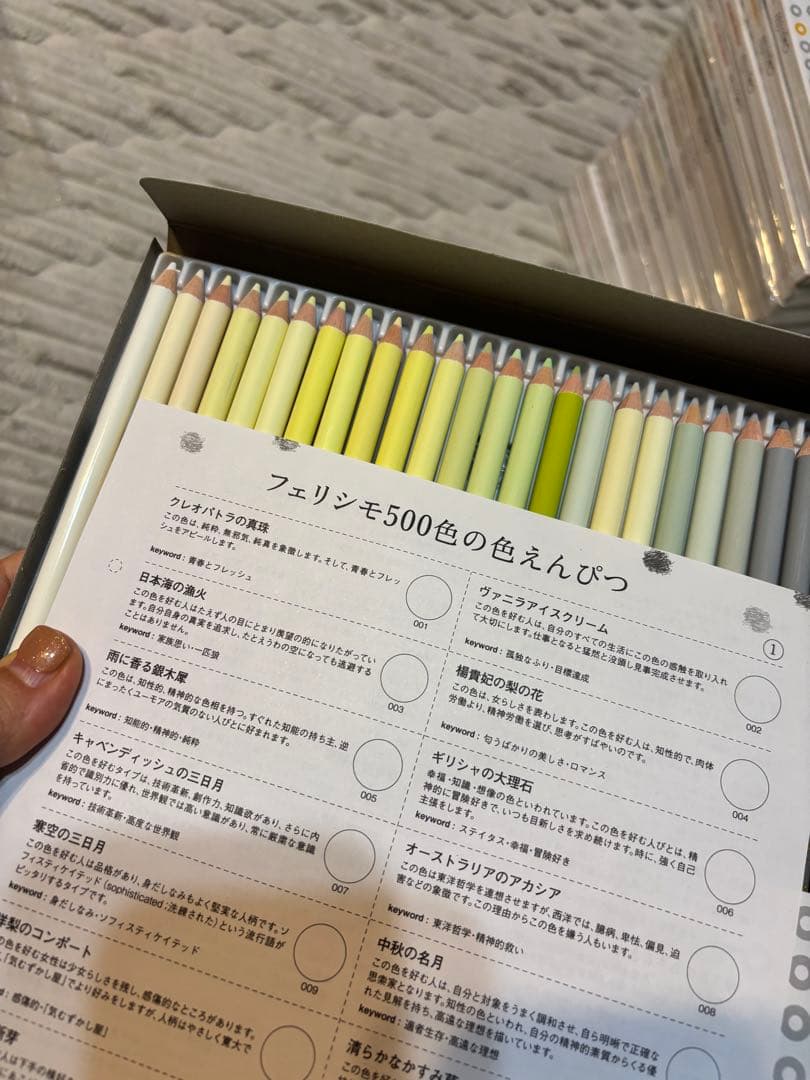 フェリシモ500色の色えんぴつ
①
クレオパトラの真珠
この色は、純粋、無邪気、純真を象徴します。そして、青春とフレッ
シュをアピールします。
keyword : 青春とフレッシュ
001
ヴァニラアイスクリーム
この色を好む人は、自分のすべての生活にこの色の感触を取り入れ
て大切にします。仕事となると猛然と没頭し見事完成させます。
keyword : 孤独なふり・目標達成
002
日本海の漁火
この色を好む人はたえず人の目にとまり羨望の的になりたがってい
ます。自分自身の真実を追求し、たとえうわの空になっても逃避する
ことはありません。
keyword : 家族思い・一匹狼
003
楊貴妃の梨の花
この色は、女らしさを表わします。この色を好む人は、知性的で、肉体
労働より、精神労働を選び、思考がすばやいのです。
keyword : 匂うばかりの美しさ・ロマンス
004
雨に香る銀木犀
この色は、知性的、精神的な色相を持つ。すぐれた知能の持ち主、逆
にまったくユーモアの気質のない人びとに好まれます。
keyword : 知能的・精神的・純粋
005
ギリシャの大理石
幸福・知識・想像の色といわれています。この色を好む人びとは、精
神的に冒険好きで、いつも目新しさを求め続けます。時に、強く自己
主張をします。
keyword : ステイタス・幸福・冒険好き
006
キャベンディッシュの三日月
この色を好むタイプは、技術革新、創作力、知識欲があり、さらに内
省的で識別力に優れ、世界観では高い意識があり、常に厳粛な意識
を持っています。
keyword : 技術革新・高度な世界観
007
オーストラリアのアカシア
この色は東洋哲学を連想させますが、西洋では、臆病、卑怯、偏見、迫
害などの象徴です。この理由からこの色を嫌う人もいます。
keyword : 東洋哲学・精神的救い
008
寒空の三日月
この色を好む人は品格があり、身だしなみもよく堅実な人柄です。ソ
フィスティケイテッド(sophisticated:洗練された)という流行語が
ピッタリするタイプです。
keyword : 身だしなみ・ソフィスティケイテッド
009
中秋の名月
この色を好む人は、自分と対象をうまく調和させ、自ら明晰で正確な
思索家となります。知性の色といわれ、自分の精神的素質からくる優
れた見解を持ち、高遠な理想を描いています。
keyword : 適者生存・高遠な理想
梨のコンポート
色を好む女性は少女らしさを残し、感傷的なところがあります。
「気むずかし屋」でより好みをしますが、人柄はやさしく寛大で
: 感傷的・「気むずかし屋」
清らかなかすみ草
新芽